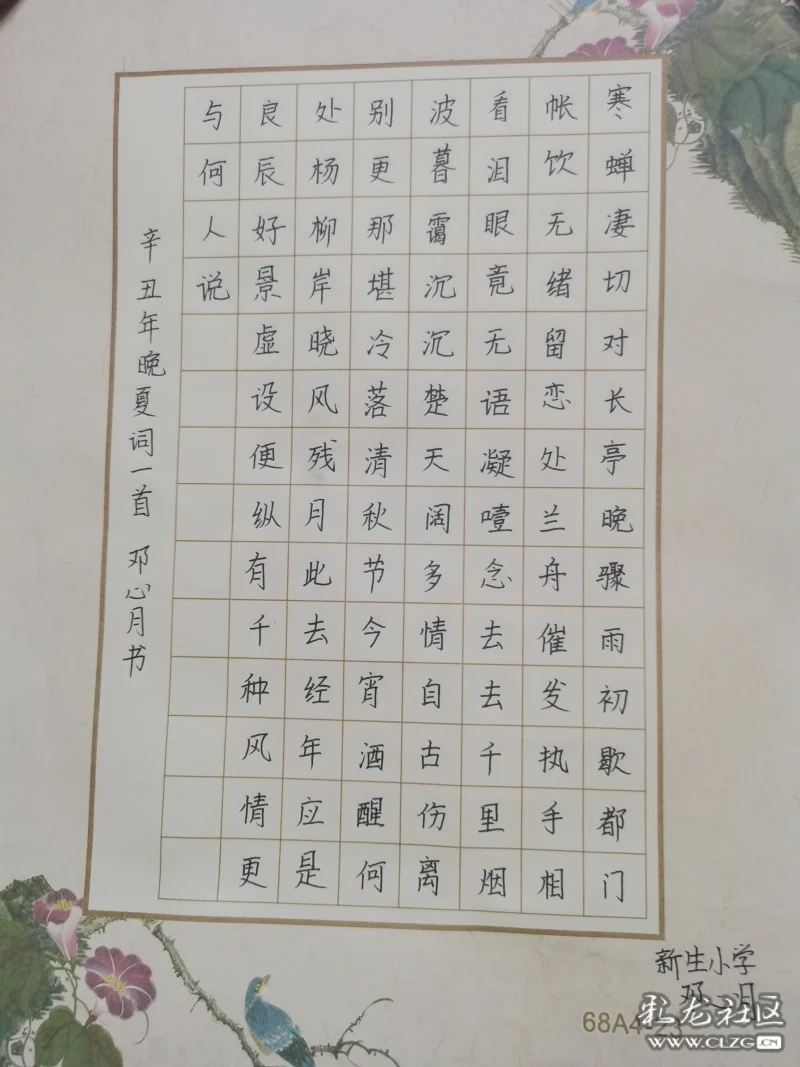 寒蝉凄切对长亭晚骤雨初歇都门
帐饮无绪留恋处兰舟催发执手相
看泪眼竟无语凝噎念去去千里烟
波暮霭沉沉楚天阔多情自古伤离
别更那堪冷落清秋节今宵酒醒何
处杨柳岸晓风残月此去经年应是
良辰好景虚设便纵有千种风情更
与何人说
辛丑年晚夏词一首 邓心月书
新生小学
邓心月
68A4-23
乳龙社区
WWW.CLZG.CN